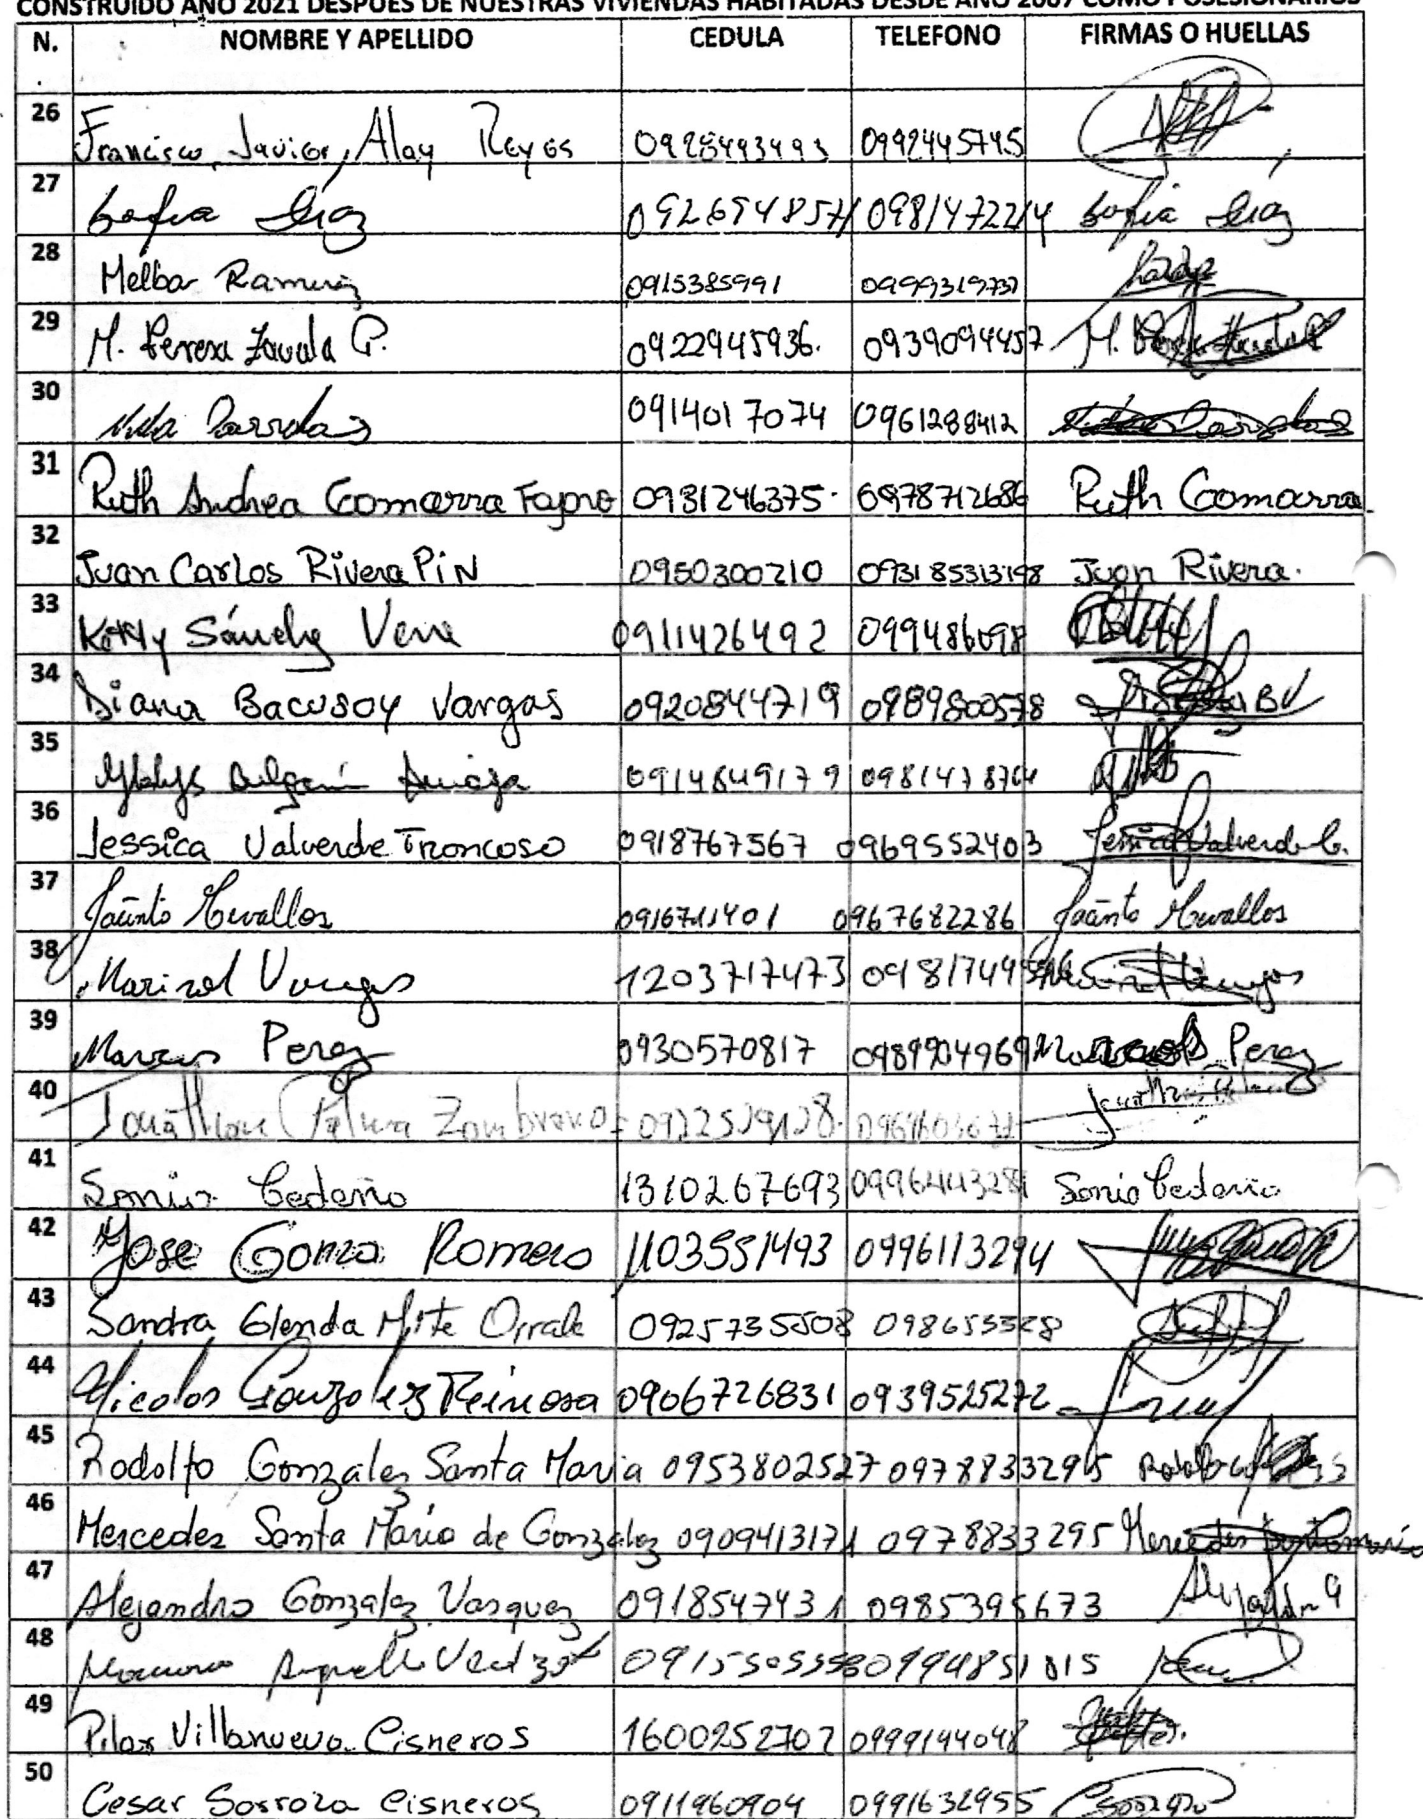 CONSTRUIDO AÑO 2021 DESPUES DE NUESTRAS VIVIENDAS HABITADAS DESDE AÑO 2007 COMO POSESIONARIOS
N. NOMBRE Y APELLIDO CEDULA TELEFONO FIRMAS O HUELLAS
26 Francisco Javier, Alay Reyes 0992445745
27 Sofia Díaz 0981472214 Sofia Díaz
28 Melba Ramirez 0915385991 0999319737
29 M. Teresa Zavala G. 0922945936. 0939094457
30 0914017074 0961288412
31 Ruth Andrea Gamarra 0931246375. 0978712686 Ruth Gamarra
32 Juan Carlos Rivera PiN 0950300210 Juan Rivera.
33 Ketty Sánchez Vera 0911426492
34 Diana Bacusoy Vargas 0920844719 0989800578
35 0981478764
36 Jessica Valverde Troncoso 0918767567 0969552403 Jessica Valverde
37 Jacinto Cevallos 0967682286 Jacinto Cevallos
38 Marisol Vargas 1203717473
39 Marcos Perez 0930570817 0989904969 Marcos Perez
40 Zambrano
41 Sonia Cedeño 1310267693 Sonia Cedeño
42 Jose Gonza Romero 1103551493 0996113294
43 Sandra Glenda Mite Orrala 0925735508 098653328
44 Nicolas Gonzalez Reinosa 0906726831 0939525272
45 Rodolfo Gonzalez Santa Maria 0953802527 0978833295
46 Mercedes Santa Maria de Gonzalez 0909413171 0978833295 Mercedes
47 Alejandro Gonzalez Vasquez 0918547431 0985395673
48 0994851815
49 Pilar Villanueva Cisneros 1600252702 0999144048
50 Cesar Sorroza Cisneros 0911960904 0991632955